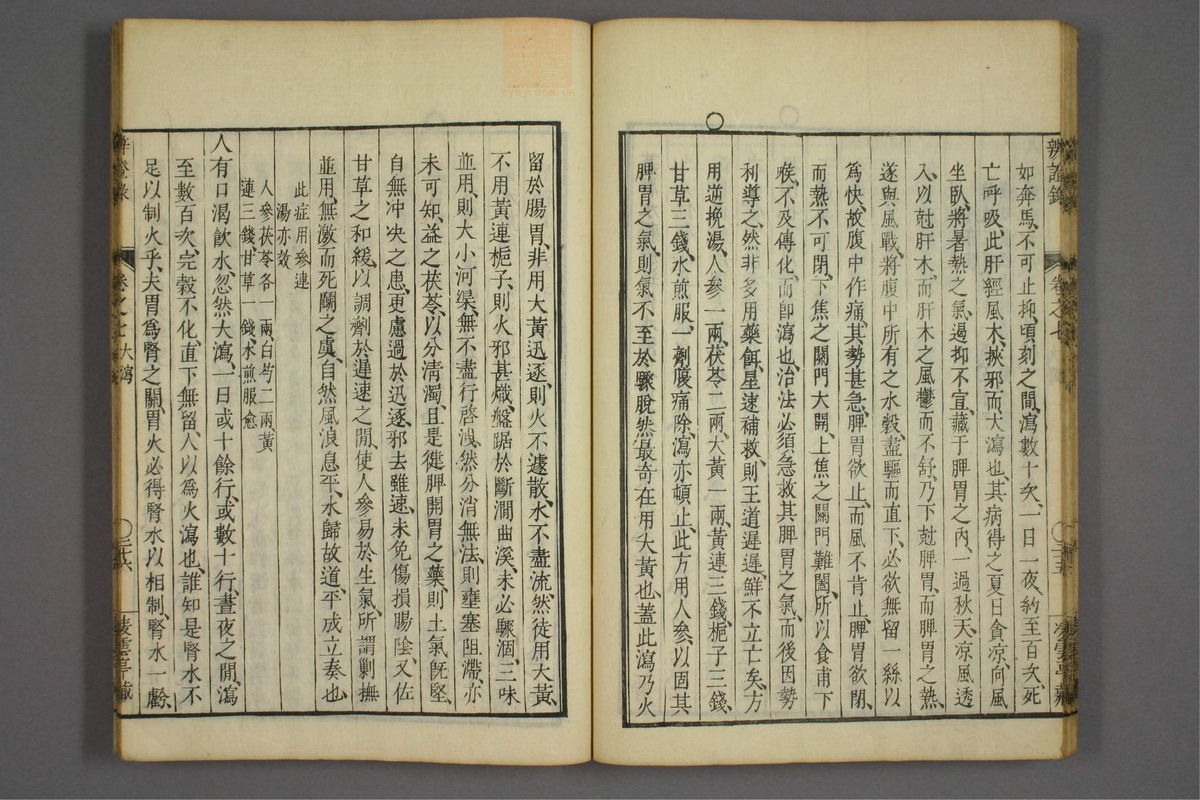 辨證錄 卷之七 三五
如奔馬、不可止抑、頃刻之間、瀉數十次、一日一夜、約至百次、死
亡呼吸、此肝經風木、挾邪而大瀉也、其病得之夏日貪凉、向風
坐臥、將暑熱之氣、遏抑不宣、藏于脾胃之內、一過秋天、凉風透
入、以尅肝木、而肝木之風鬱而不舒、乃下尅脾胃、而脾胃之熱、
遂與風戰、將腹中所有之水穀盡驅而直下、必欲無留一絲以
爲快、故腹中作痛、其勢甚急、脾胃欲止、而風不肯止、脾胃欲閉、
而熱不可閉、下焦之關門大開、上焦之關門難闔、所以食甫下
喉、不及傳化、而卽瀉也、治法必須急救其脾胃之氣、而後因勢
利導之、然非多用藥餌、星速補救、則王道遲遲、鮮不立亡矣、方
用逆挽湯、人參一兩、茯苓二兩、大黃一兩、黃連三錢、梔子三錢、
甘草三錢、水煎服、一劑腹痛除、瀉亦頓止、此方用人參、以固其
脾胃之氣、則氣不至於驟脫、然最奇在用大黃也、蓋此瀉乃火
留於腸胃、非用大黃迅逐、則火不遽散、水不盡流、然徒用大黃、
不用黃連梔子、則火邪甚熾、盤踞於斷澗曲溪、未必驟涸、三味
並用、則大小河渠、無不盡行啓洩、然分消無法、則壅塞阻滯、亦
未可知、益之茯苓、以分淸濁、且是徤脾開胃之藥、則土氣旣堅、
自無冲决之患、更慮過於迅逐、邪去雖速、未免傷損腸陰、又佐
甘草之和緩、以調劑於遲速之間、使人參易於生氣、所謂剿撫
並用、無激而死鬭之虞、自然風浪息平、水歸故道、平成立奏也
此症用參連
湯亦效
人參茯苓各一兩白芍二兩黃
連三錢、甘草一錢、水煎服愈
人有口渴飲水、忽然大瀉、一日或十餘行、或數十行、晝夜之間、瀉
至數百次、完穀不化、直下無留、人以爲火瀉也、誰知是腎水不
足以制火乎、夫胃爲腎之關、胃火必得腎水以相制、腎水一虧、
辨證錄 卷之七 大瀉 三六 凌雲亭藏